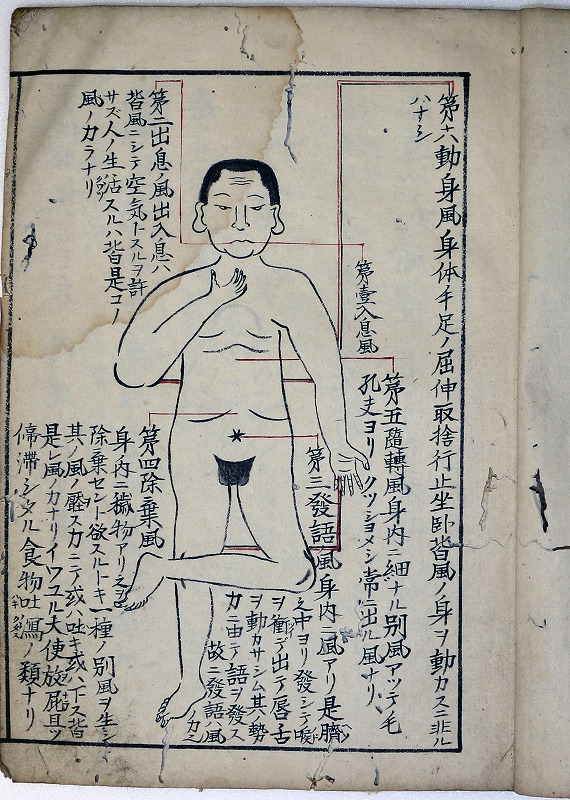 第六動身風ノ身体手足ノ屈伸取捨行止坐臥皆風ノ身ヲ動カスニ非ル
ハナシ
第壹入息風
第五隨轉風身内ニ細ナル別風アツテ毛
孔支ヨリクツショメシ常ニ出ル風ナリ
第二出息ノ風出入息ハ
皆風ニシテ空気トスルヲ許
サズ人ノ生活スルハ皆是コノ
風ノカラナリ
第三發語風身内ニ風アリ是臍
之中ヨリ發シテ喉
ヲ衝デ出テ唇舌
ヲ動カサシム其ノ勢
力ニ由テ語ヲ發ス
故ニ發語ハ風
第四除棄風
身ノ内ニ穢物アリ之ヲ
除棄セント欲スルトキ一種ノ別風ヲ生シ
其ノ風ノ壓スカニテ或ハ吐キ或ハ下ス皆
是レ風ノカナリイワユル大便放屁且ツ
停滞シタル食物吐瀉ノ類ナリ